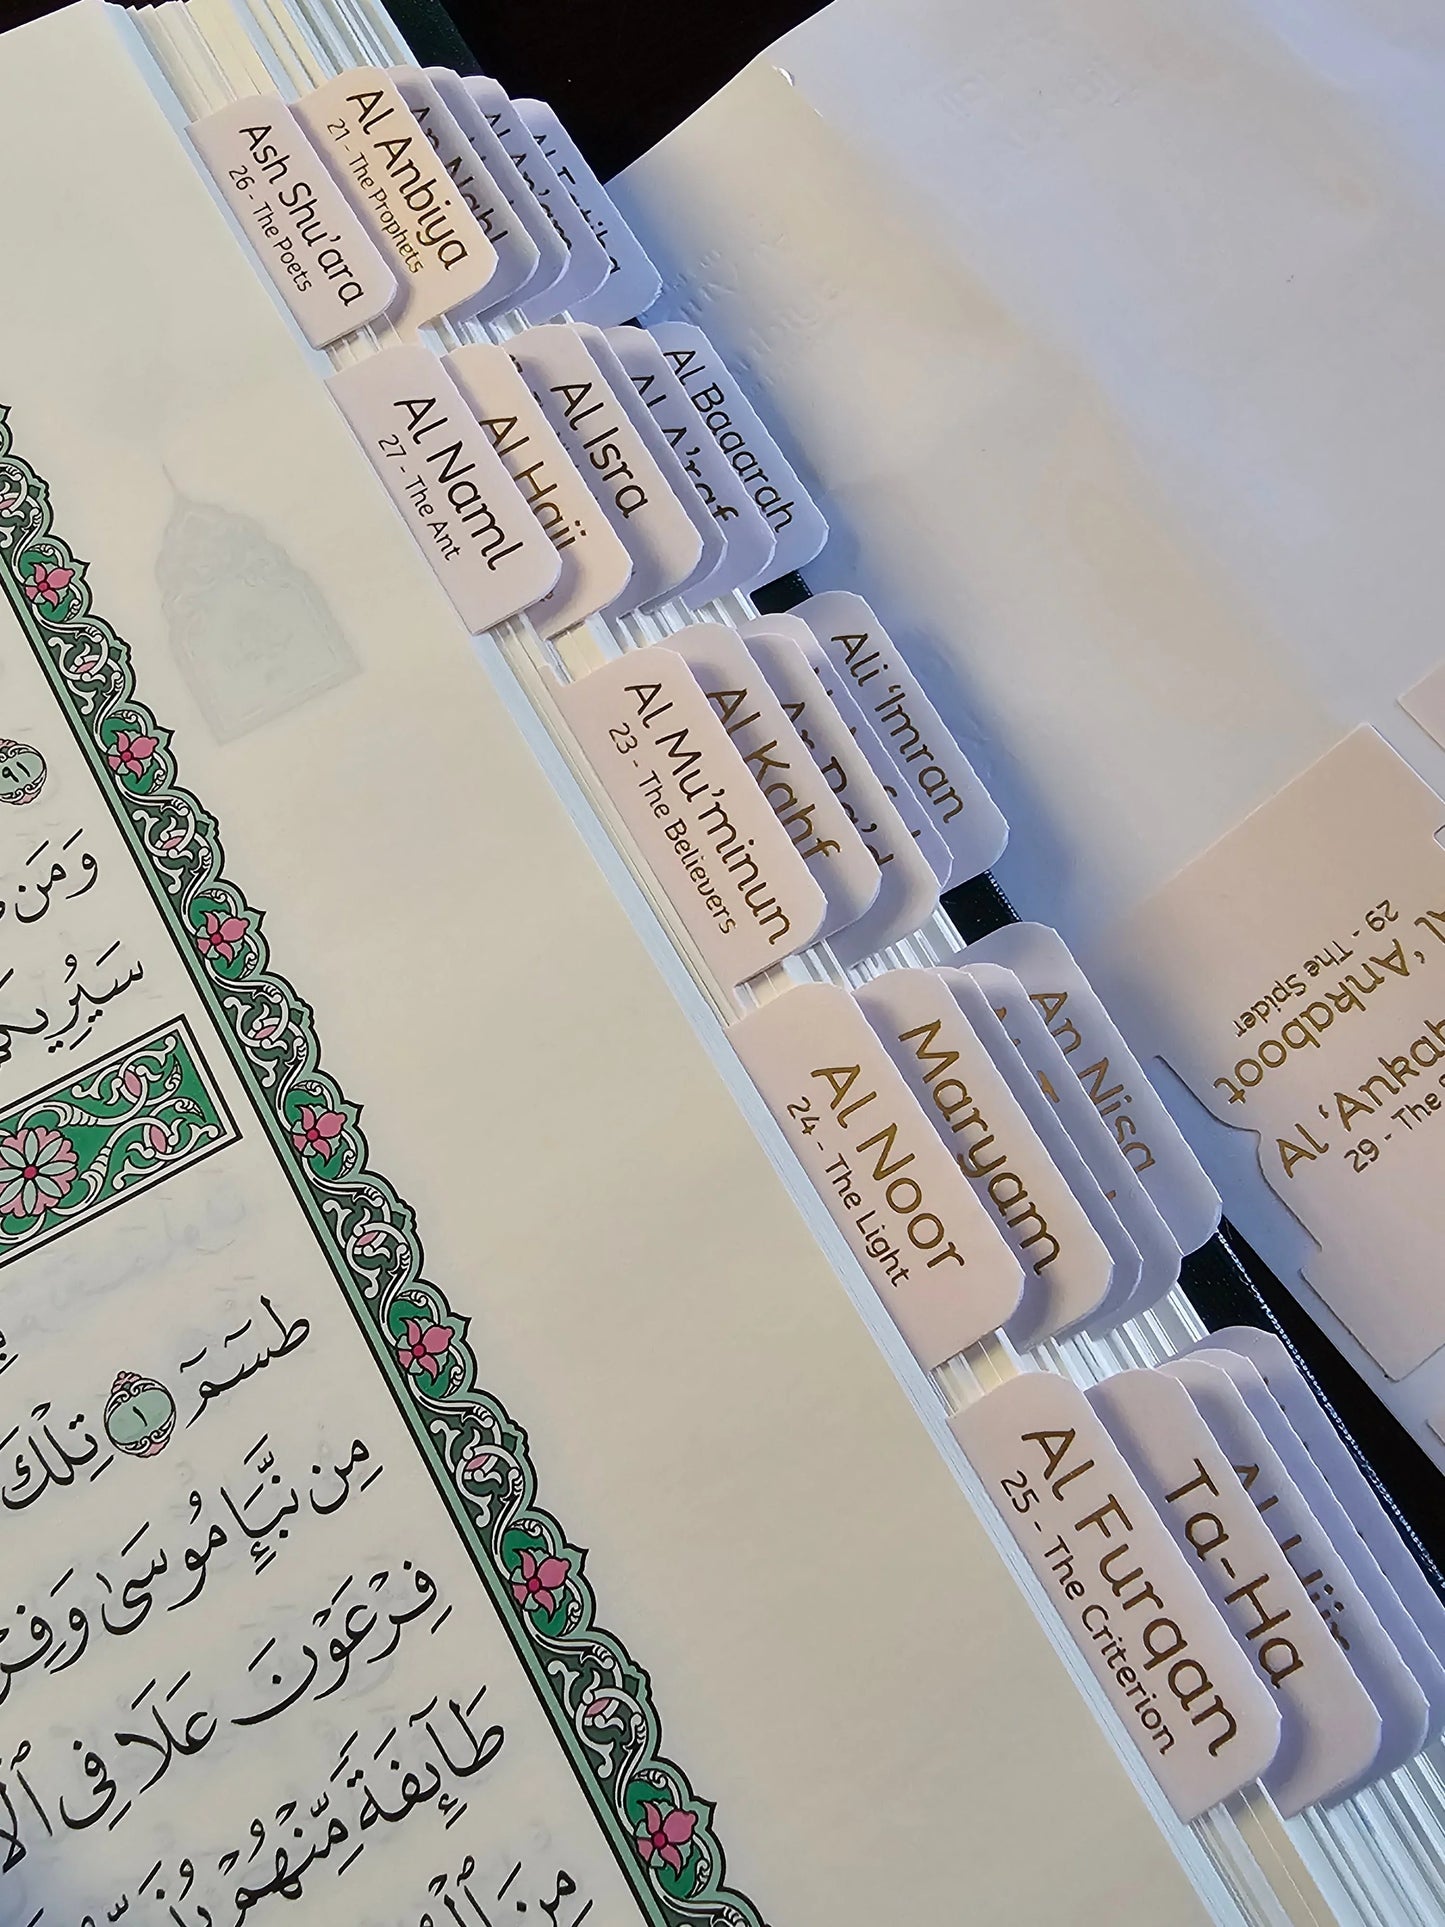 Ash Shu'ara
26 - The Poets
Al Anbiya
21 - The Prophets
Al Naml
27 - The Ant
Al Hajj
Al Isra
Al A'raf
Al Baqarah
Al Mu'minun
23 - The Believers
Al Kahf
Ar Ra'd
Ali 'Imran
Al Noor
24 - The Light
Maryam
An Nisa
Al Furqan
25 - The Criterion
Ta-Ha
Al Hijr
Al 'Ankaboot
29 - The Spider
29 - The
٩١
وَمَن
سَيُرِيكُمْ
طسٓمٓ ١ تِلْكَ
مِن نَّبَإِ مُوسَىٰ وَفِرْ
فِرْعَوْنَ عَلَا فِى ٱلْأ
طَآئِفَةً مِّنْهُمْ
مِنَ